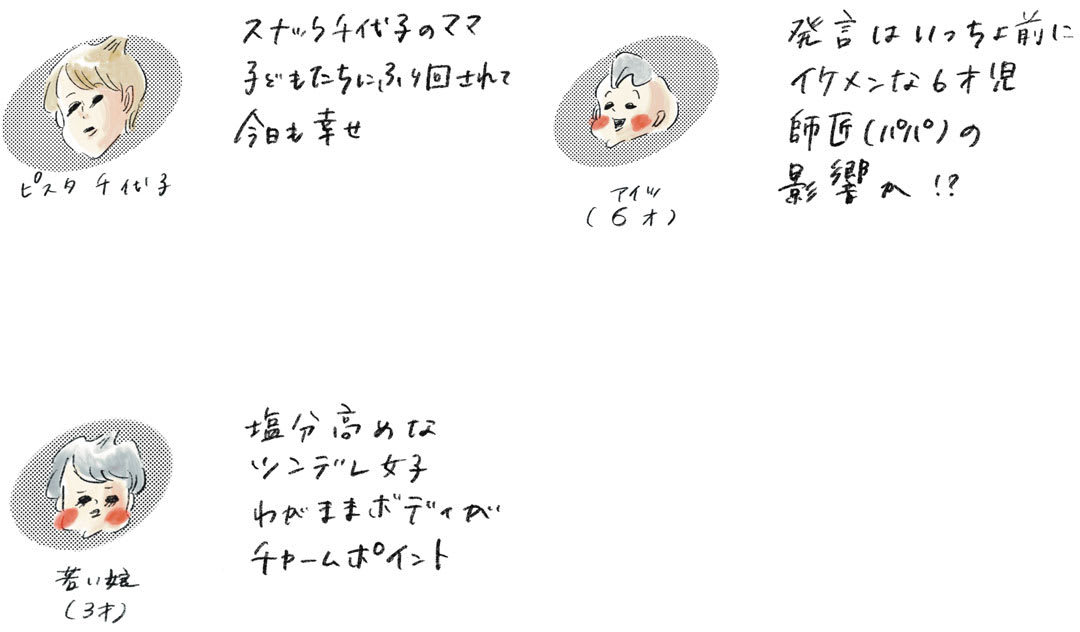 スナック千代子のママ
子どもたちにふり回されて
今日も幸せ
ピスタチ代子
発言はいっちょ前に
イケメンな6才児
師匠(パパ)の
影響か!?
アイツ
(6才)
塩分高めな
ツンデレ女子
わがままボディが
チャームポイント
若い娘
(3才)